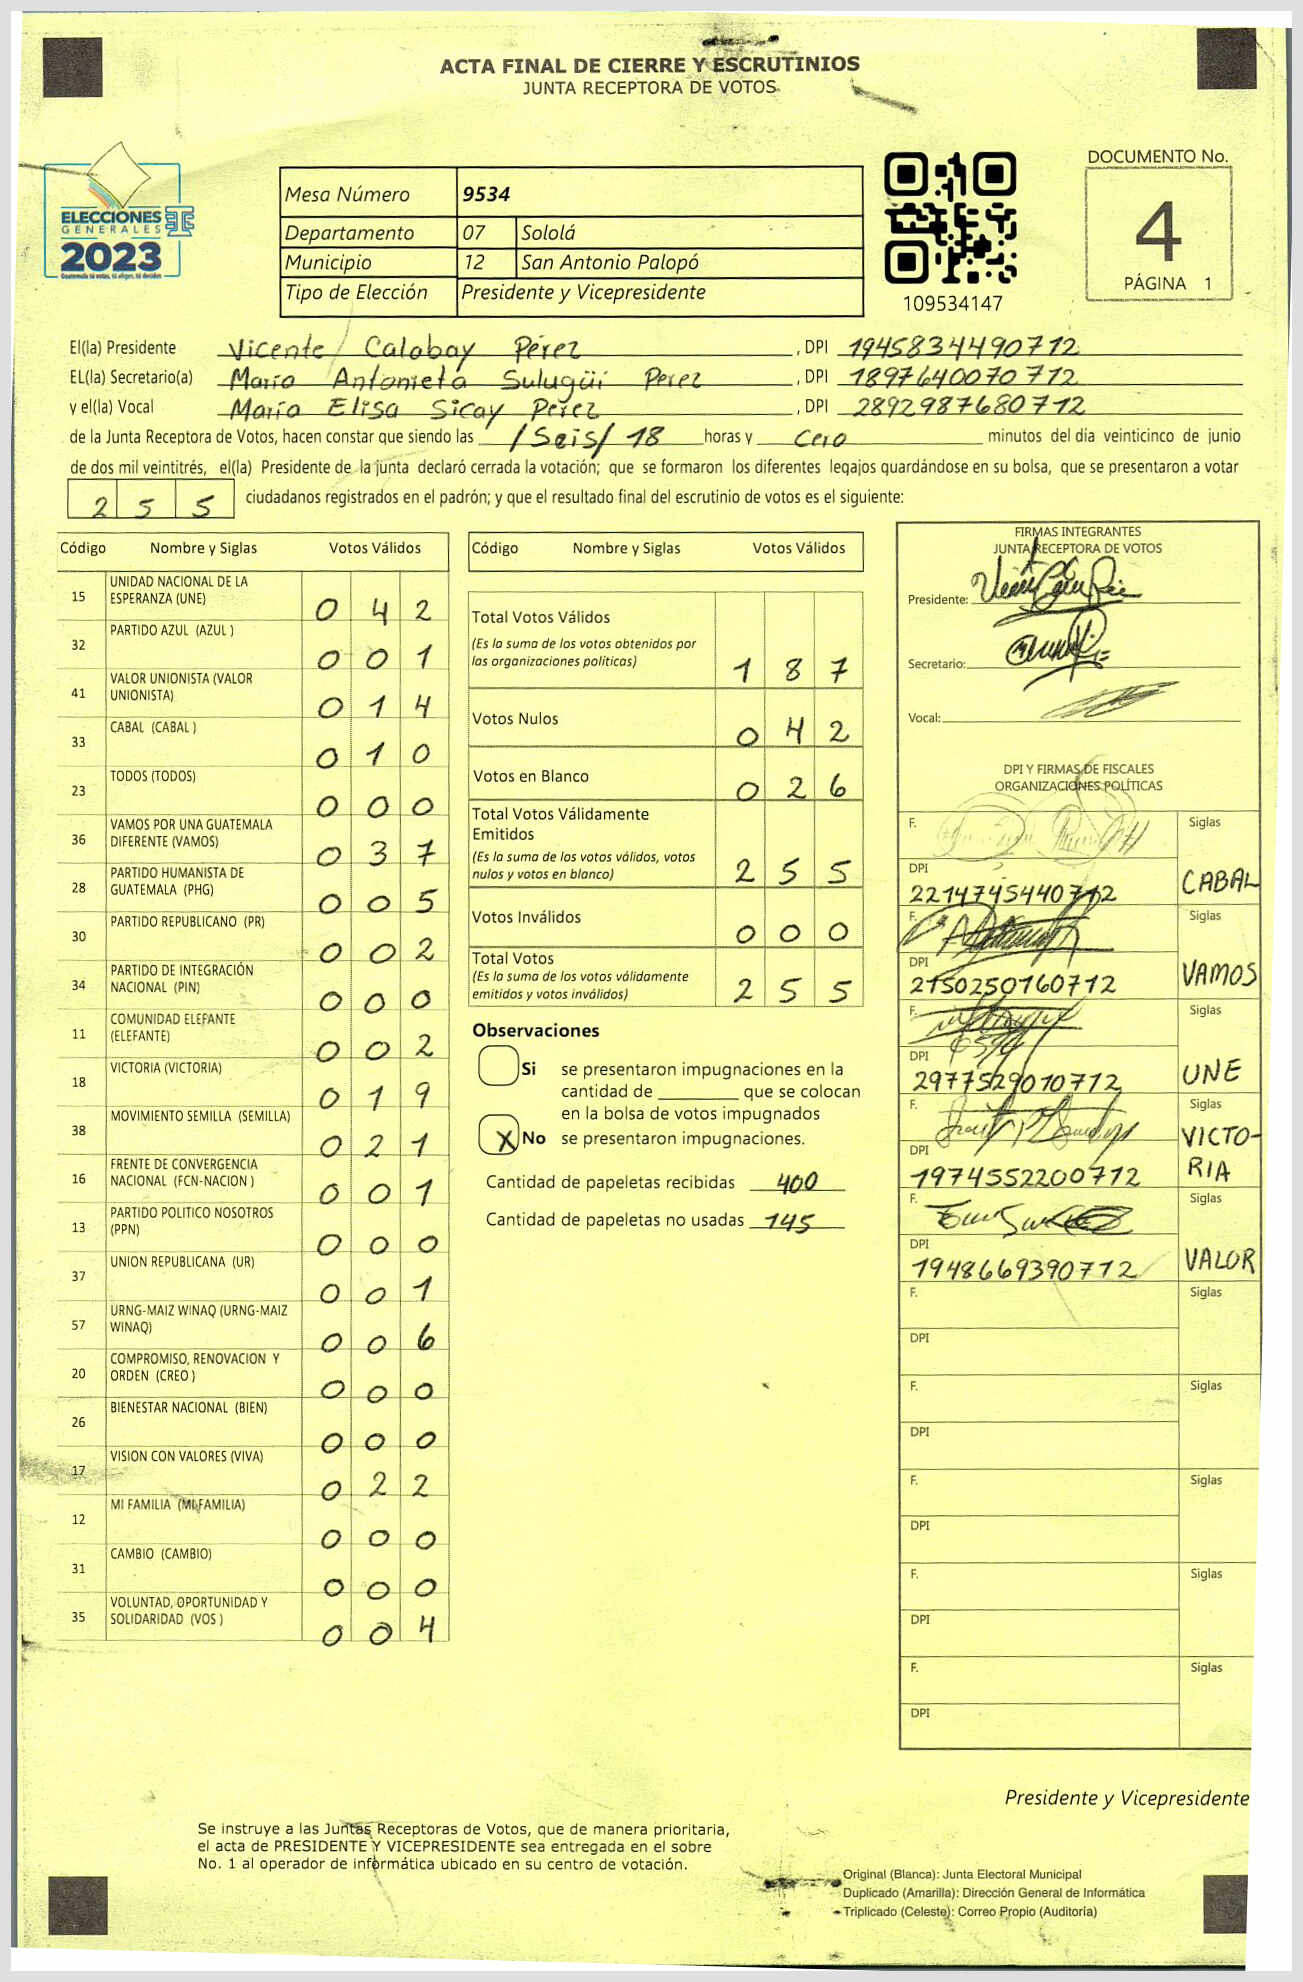 ACTA FINAL DE CIERRE Y ESCRUTINIOS
JUNTA RECEPTORA DE VOTOS
ELECCIONES
GENERALES
2023
Guatemala tú votas, tú eliges, tú decides
Mesa Número 9534
Departamento 07 Sololá
Municipio 12 San Antonio Palopó
Tipo de Elección Presidente y Vicepresidente
109534147
DOCUMENTO No.
4
PÁGINA 1
El(la) Presidente Vicente Calabay Pérez , DPI 1945834490712
EL(la) Secretario(a) María Antonieta Sulugüi Perez , DPI 1897640070712
y el(la) Vocal María Elisa Sicay Pérez , DPI 2892987680712
de la Junta Receptora de Votos, hacen constar que siendo las /Seis/ 18 horas y Cero minutos del día veinticinco de junio
de dos mil veintitrés, el(la) Presidente de la junta declaró cerrada la votación; que se formaron los diferentes legajos guardándose en su bolsa, que se presentaron a votar
2 5 5 ciudadanos registrados en el padrón; y que el resultado final del escrutinio de votos es el siguiente:
Código Nombre y Siglas Votos Válidos
15 UNIDAD NACIONAL DE LA
ESPERANZA (UNE) 0 4 2
32 PARTIDO AZUL (AZUL ) 0 0 1
41 VALOR UNIONISTA (VALOR
UNIONISTA) 0 1 4
33 CABAL (CABAL ) 0 1 0
23 TODOS (TODOS) 0 0 0
36 VAMOS POR UNA GUATEMALA
DIFERENTE (VAMOS) 0 3 7
28 PARTIDO HUMANISTA DE
GUATEMALA (PHG) 0 0 5
30 PARTIDO REPUBLICANO (PR) 0 0 2
34 PARTIDO DE INTEGRACIÓN
NACIONAL (PIN) 0 0 0
11 COMUNIDAD ELEFANTE
(ELEFANTE) 0 0 2
18 VICTORIA (VICTORIA) 0 1 9
38 MOVIMIENTO SEMILLA (SEMILLA) 0 2 1
16 FRENTE DE CONVERGENCIA
NACIONAL (FCN-NACION ) 0 0 1
13 PARTIDO POLITICO NOSOTROS
(PPN) 0 0 0
37 UNION REPUBLICANA (UR) 0 0 1
57 URNG-MAIZ WINAQ (URNG-MAIZ
WINAQ) 0 0 6
20 COMPROMISO, RENOVACION Y
ORDEN (CREO ) 0 0 0
26 BIENESTAR NACIONAL (BIEN) 0 0 0
17 VISION CON VALORES (VIVA) 0 2 2
12 MI FAMILIA (MI FAMILIA) 0 0 0
31 CAMBIO (CAMBIO) 0 0 0
35 VOLUNTAD, OPORTUNIDAD Y
SOLIDARIDAD (VOS ) 0 0 4
Código Nombre y Siglas Votos Válidos
Total Votos Válidos
(Es la suma de los votos obtenidos por
las organizaciones políticas) 1 8 7
Votos Nulos 0 4 2
Votos en Blanco 0 2 6
Total Votos Válidamente
Emitidos
(Es la suma de los votos válidos, votos
nulos y votos en blanco) 2 5 5
Votos Inválidos 0 0 0
Total Votos
(Es la suma de los votos válidamente
emitidos y votos inválidos) 2 5 5
Observaciones
Si se presentaron impugnaciones en la
cantidad de ________ que se colocan
en la bolsa de votos impugnados
X No se presentaron impugnaciones.
Cantidad de papeletas recibidas 400
Cantidad de papeletas no usadas 145
FIRMAS INTEGRANTES
JUNTA RECEPTORA DE VOTOS
Presidente:
Secretario:
Vocal:
DPI Y FIRMAS DE FISCALES
ORGANIZACIONES POLÍTICAS
F. Siglas
DPI CABAL
2214745440712
F. Siglas
DPI VAMOS
2150250160712
F. Siglas
DPI UNE
2977529010712
F. Siglas
DPI VICTO-
1974552200712 RIA
F. Siglas
DPI VALOR
1948669390712
F. Siglas
DPI
F. Siglas
DPI
F. Siglas
DPI
F. Siglas
DPI
F. Siglas
DPI
Presidente y Vicepresidente
Se instruye a las Juntas Receptoras de Votos, que de manera prioritaria,
el acta de PRESIDENTE Y VICEPRESIDENTE sea entregada en el sobre
No. 1 al operador de informática ubicado en su centro de votación.
Original (Blanca): Junta Electoral Municipal
Duplicado (Amarilla): Dirección General de Informática
Triplicado (Celeste): Correo Propio (Auditoría)